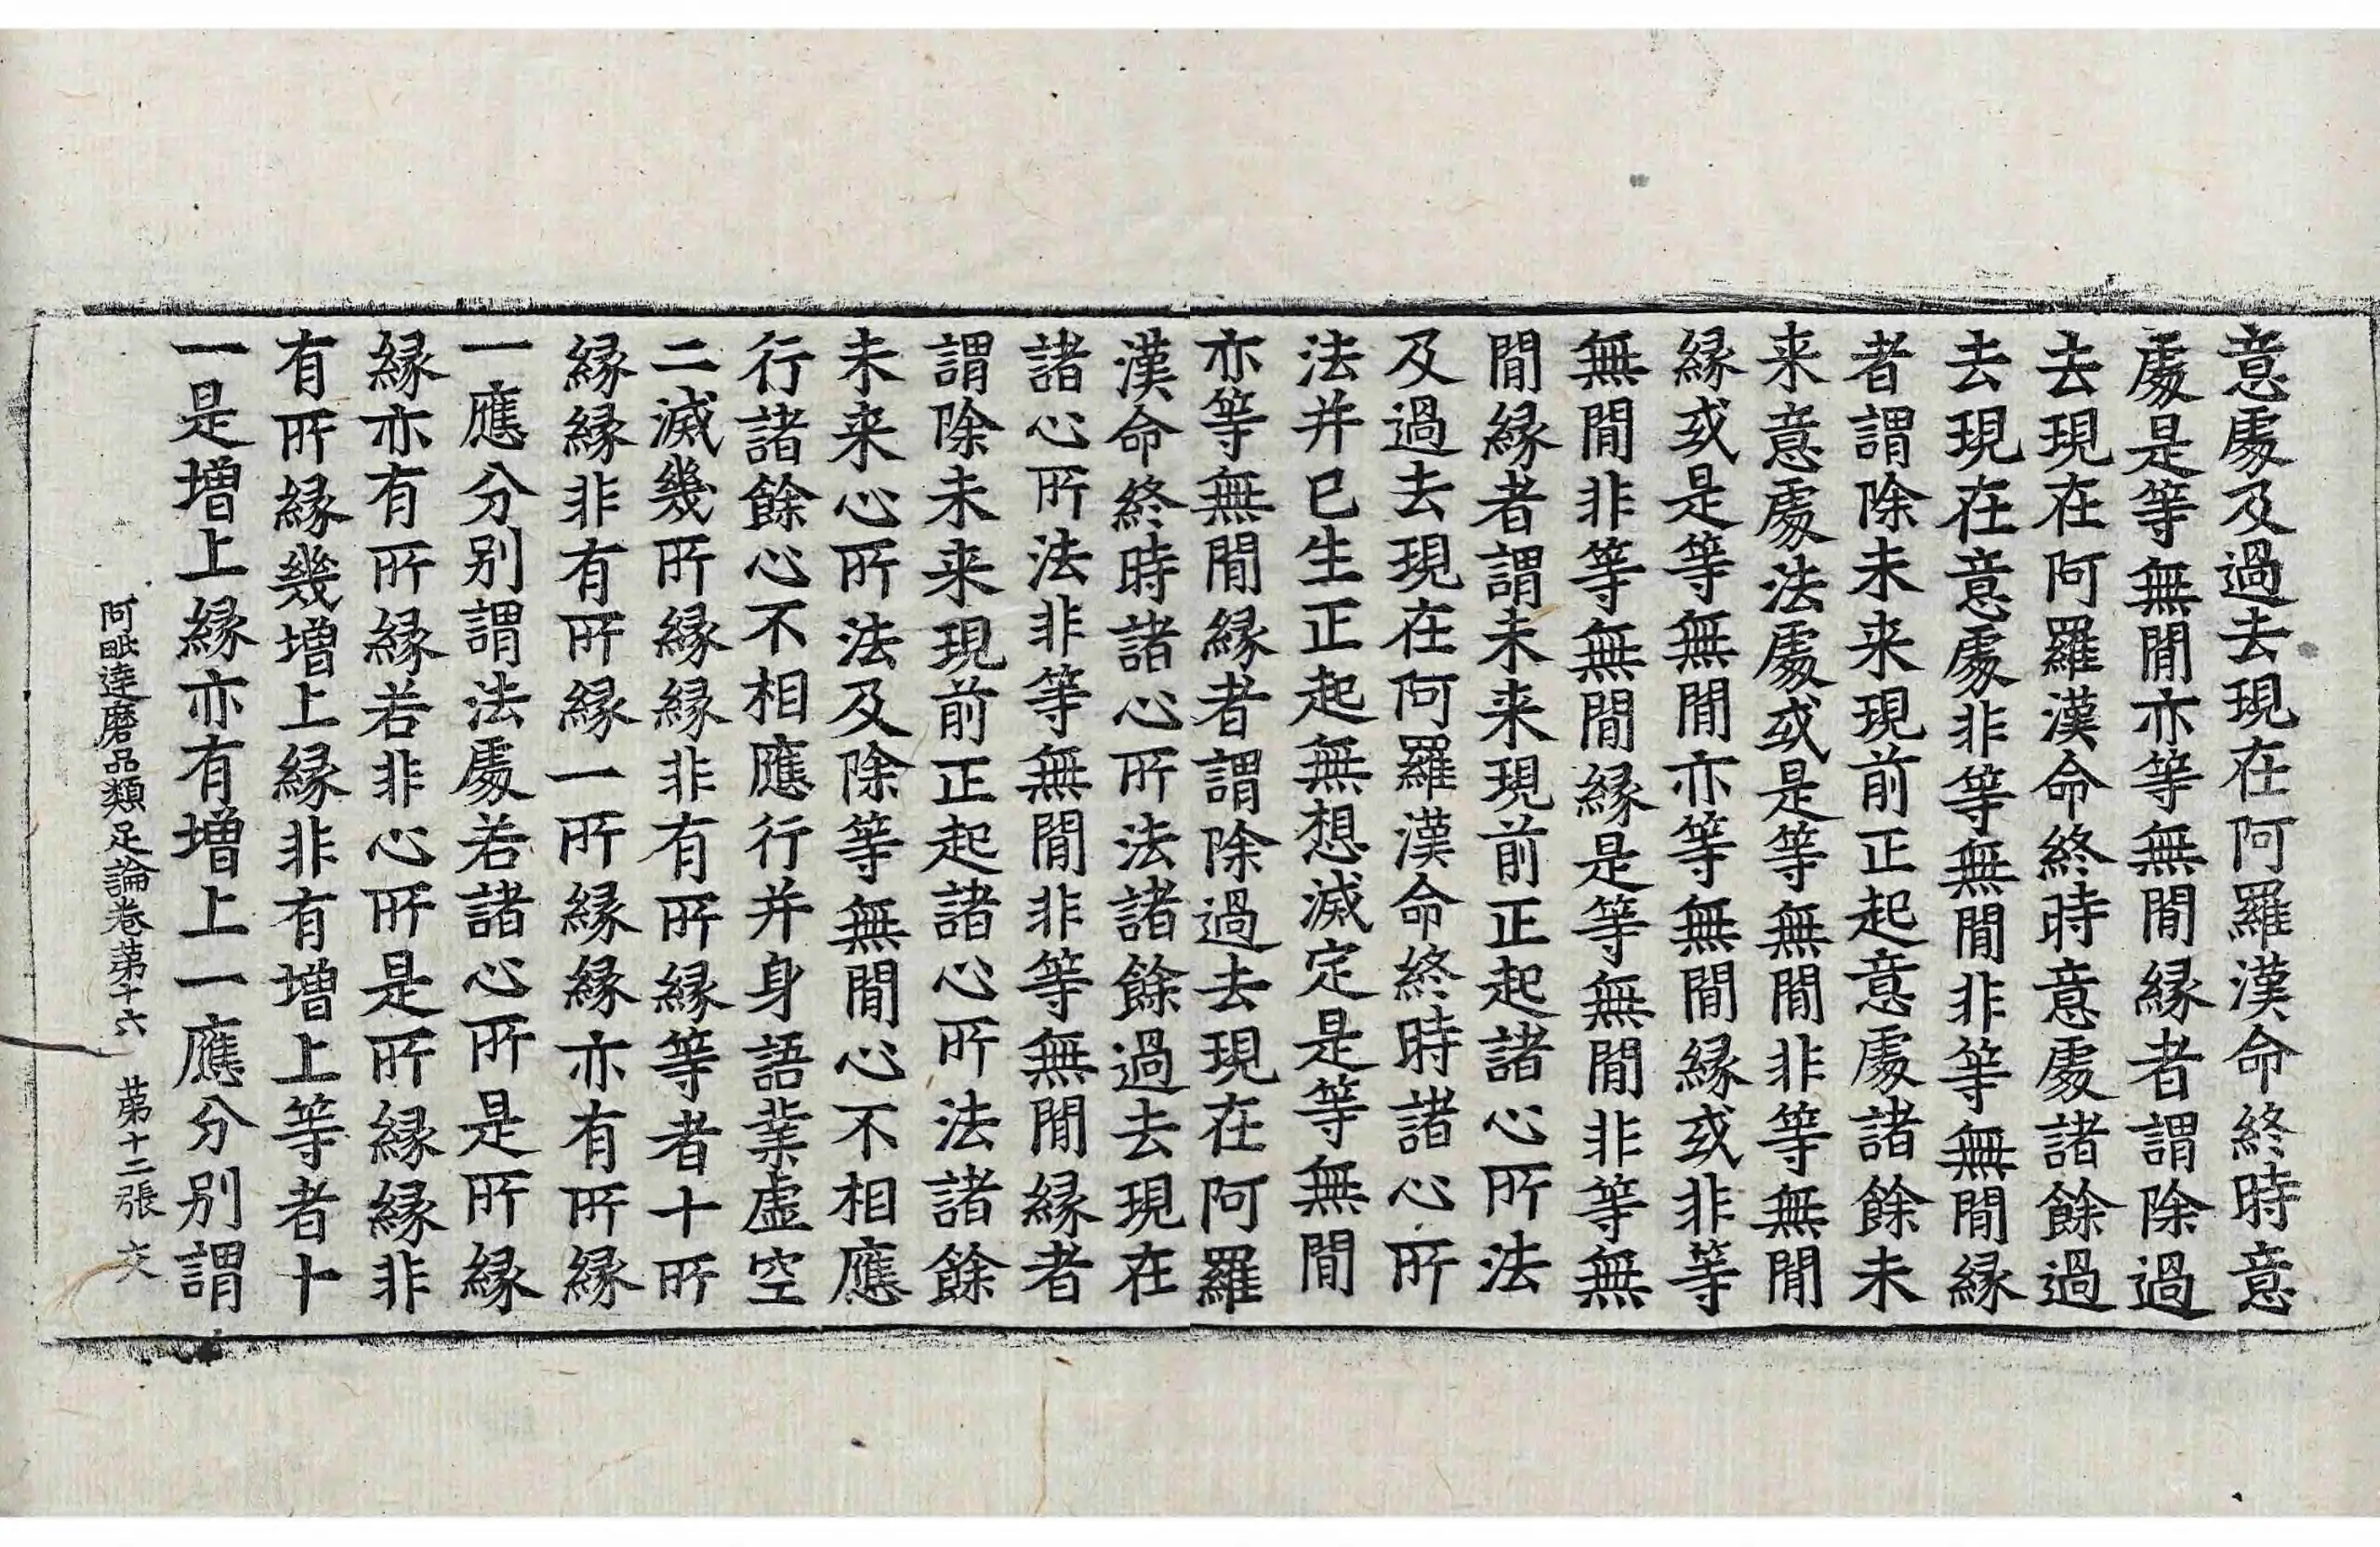 意處及過去現在阿羅漢命終時意
處是等無閒亦等無閒緣者謂除過
去現在阿羅漢命終時意處諸餘過
去現在意處非等無閒非等無閒緣
者謂除未来現前正起意處諸餘未
来意處法處或是等無閒非等無閒
緣或是等無閒亦等無閒緣或非等
無閒非等無閒緣是等無閒非等無
閒緣者謂未来現前正起諸心所法
及過去現在阿羅漢命終時諸心所
法并已生正起無想滅定是等無閒
亦等無閒緣者謂除過去現在阿羅
漢命終時諸心所法諸餘過去現在
諸心所法非等無閒非等無閒緣者
謂除未来現前正起諸心所法諸餘
未来心所法及除等無閒心不相應
行諸餘心不相應行并身語業虛空
二滅幾所緣緣非有所緣等者十所
緣緣非有所緣一所緣緣亦有所緣
一應分別謂法處若諸心所是所緣
緣亦有所緣若非心所是所緣緣非
有所緣幾增上緣非有增上等者十
一是增上緣亦有增上一應分別謂
阿毗達磨品類足論卷苐十六 苐十二張 火